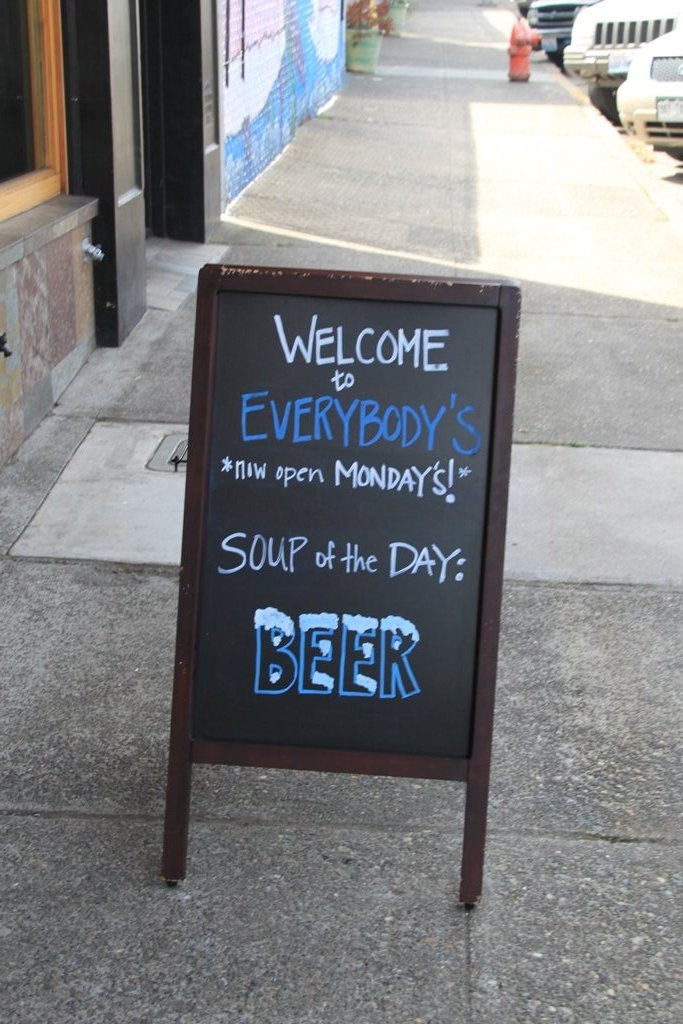 WELCOME
to
EVERYBODY'S
*now open MONDAY'S!*
SOUP of the DAY:
BEER